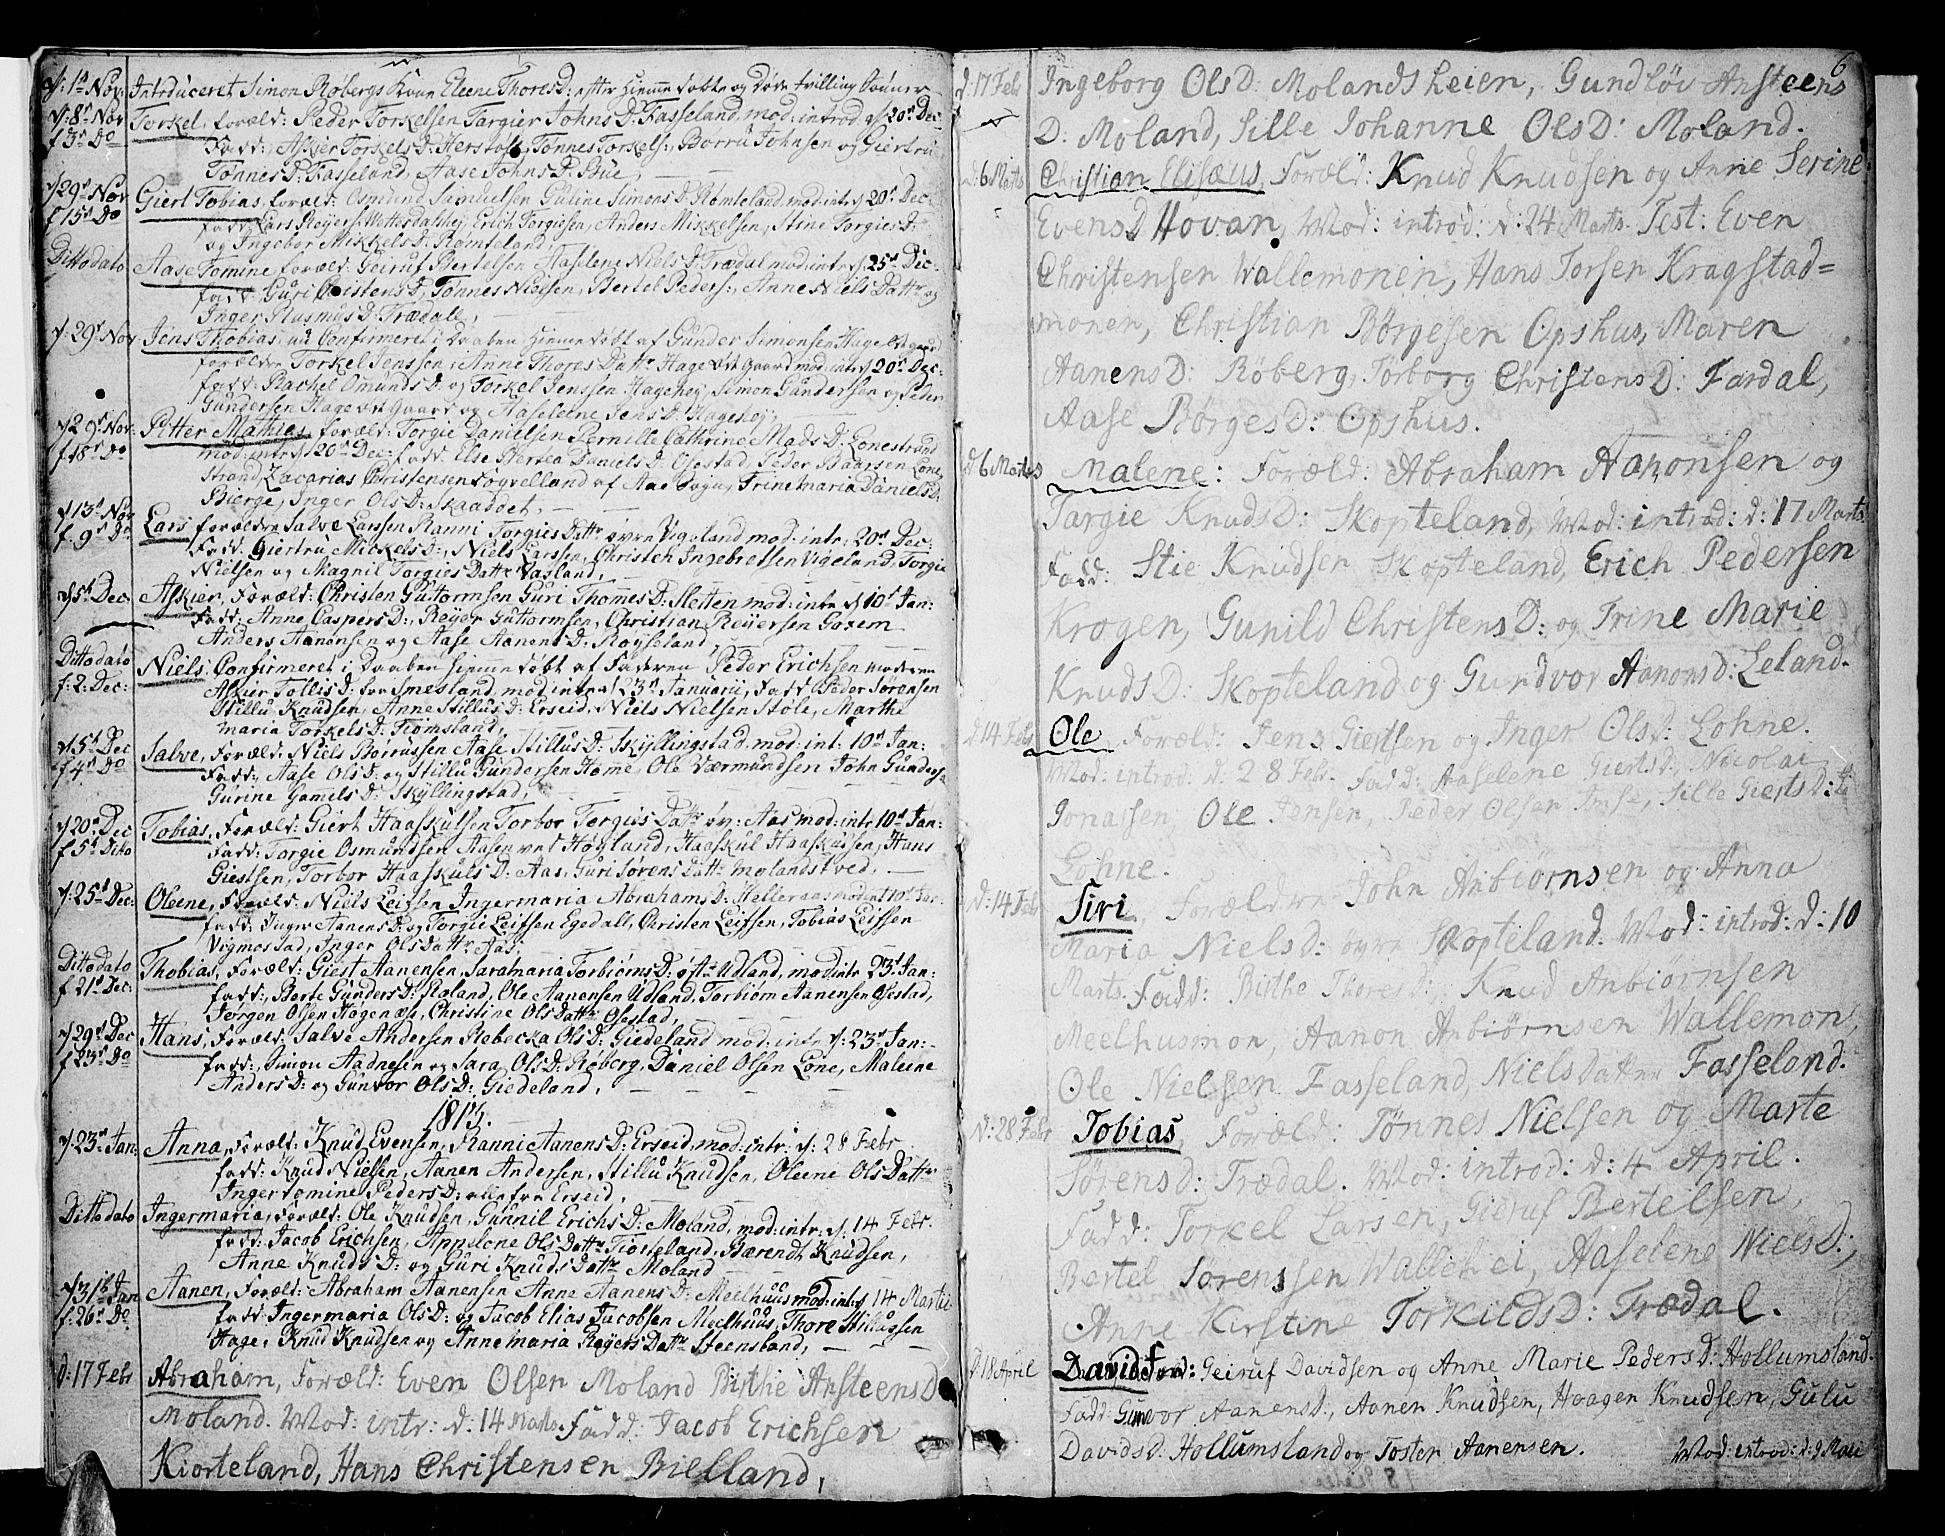 d: 1st Nov: Introduceret Simon Røbergs Kone Eleene Thores D: efter hiemme døbte og døde tvilling Sønner
d: 8de Nov Torkel, foræld: Peder Torkelsen Targier Johns D: Fasseland, mod: introd: d 20de Dec:
f 3de Do Fadd: Asker Torkels D: Herstøl, Tønnes Torkels:, Børru Johnsen og Giertru
Tønnes D: Fasseland, Aase Johns D. Bue,
d 29de Nov Giert Tobias, foræld: Osmund Samuelsen Guline Simons D. Homteland mod: intr d 20de Dec:
f 15de Do fadd: Lars Reyers: Erich Torgiesen, Anders Mikkelsen, Stine Torgies D:
og Ingebor Mikkels D: Homteland
Ditto dato Aase Tomine foræld: Geiruf Bertelsen Aaselene Niels D. Trædal mod: intr d 25de Dec:
fadd: Guri Christens D, Tønnes Nielsen, Bertel Peders:, Anne Niels Dattr og
Inger Rasmus D: Trædale,
d: 29de Nov Jens Thobias, ud Confirmeret i Daaben hiemmedøbt af Gunder Simonsen Hage
forældre Torkel Jenssen, Anne Thores Dattr Hage vst Gaard mod: intr d 20de Dec:
fadd: Rachel Omunds D: og Torkel Jenssen Hagehøy, Simon Gundersen og Peder
Gundersen Hage vst Gaard og Aaselene Jens D. Hagehøj,
d 29de Nov: Petter Mathias, foræld: Torgie Danielsen Pernille Cathrine Mads D. Lonestrand
f 18de do mod: intr d 20de Dec: fadd: Else Bertea Daniels D: Osestad, Peder Baarsen Lone
Strand, Zacarias Christensen Fogvelland af Aas Sogn, Trinemaria Daniels D:
Bierge, Inger Ols D: Skaadset,
d 13de Nov Lars forældre Salve Larssen Ranni Torgies Dattr øvre Vigeland mod: intr: 20de Dec:
f. 9de Do Fadd: Giertru Mickels D:, Niels Larssen, Christen Ingebretsen Vigeland, Torgie
Nielsen og Magnil Torgies Dattr Vasland,
d 5de Dec: Askier, Foræld: Christen Guttormsen Guri Thomes D: Sletten mod: intr d 10de Jan:
fadd: Anne Caspers D:, Reyer Guttormsen, Christian Reyersen Goxem
Anders Aanonsen og Aase Aanens D: Røyseland,
Ditto dato Niels. Confirmeret i Daaben hiemmedøbt af Faderen Peder Erichsen moderen
f: 2: Dec: Asker Tollis D: for Smesland, mod: intr d 23de Januarii, Fadd: Peder Sørensen
Stillu Knudsen, Anne Stillus D: Erseid, Niels Nielsen Støle, Marthe
maria Torkels D: Tiomsland,
d 5de Dec Salve, Foræld: Niels Borrussen Aase Stillus D: Skyllingstad, mod: int: 10de Jan:
f 4de Do Fadd:, Aase Ols D: og Stillu Gundersen Home, Ole Værmundsen John Gunders:
Gurine Gamels D: Skyllingstad,
d 20de Dec Tobias, Foræld: Giert Haasskulsen Torbor Torgius Dattr øv: Aas mod: intr 10de Jan:
f 5de Dito Fadd: Torgie Osmundsen Aasen vst Høyland, Haasskul Haasskulsen, Hans
Giestsen, Torbor Haasskuls D: Aas, Guri Sørens Dattr Molandstved,
d: 25de Dec: Oleene, Foræld: Niels Leifsen Ingermaria Abrahams D: Helleraas mod: int 10de Jan:
fadd: Inger Aanens D: og Torgie Leifssen Egedall, Christen Leifsen, Tobias Leifsen
Vigmostad, Inger Ols Dattr Aas,
Ditto dato Thobias, Foræld: Giest Aanensen, Saramaria Torbiørns D: Udland, mod: intr 23de Jan:
f 21de Dec: fadd:, Berte Gunders D: Roland, Ole Aanensen Udland, Torbiørn Aanensen Osestad,
Jørgen Olsen Høgenæs, Christine Ols Dattr Osestad,
d 29de Dec Hans, Foræld: Salve Andersen Rebecka Ols D: Giedeland mod: intr d: 23de Jan:
f 23de Do fadd:, Simon Aadnesen og Sara Ols D: Røberg, Daniel Olsen Lone, Maleene
Anders D: og Gunvor Ols D: Giedeland,
1813.
d: 23de Jan: Anna, Foræld: Knud Evensen, Ranni Aanens D: Erseid, mod: intr: d: 28 Febr
fadd: Knud Nielsen, Aanen Andersen, Stillu Knudsen, Oleene Ols Dattr
Inger tomine Peders D: alle fra Erseid,
Ditto dato Ingermaria, Foræld: Ole Knudsen, Gunnil Erichs D: Moland, mod: intr: d. 14 Febr.
fadd: Jacob Erichsen, Appelone Ols Dattr Tiorteland, Bærendt Knudsen,
Anne Knuds D: og Guri Knuds Dattr Moland
d 31te Jan Aanen, Foræld: Abraham Aanensen Anne Aanens D: Meelhuus mod: intr d 14 Martii
f: 26de Do fadd: Ingermaria Ols D: og Jacob Elias Jacobsen Meelhuus, Thore Stillussen
Hage, Knud Knudsen og Annemaria Reyers Dattr Steensland,
d: 17 Febr Abraham, Foræld: Even Olsen Moland Birthe Ansteens D
Moland. Mod: intr: d: 14 Marts. Fadd: Jacob Erichsen
Kiorteland, Hans Christensen Bielland,
6
d: 17 Febr Ingeborg Ols D: Molandsheien, Gundløv Ansteens
D: Moland, Sille Johanne Ols D: Moland.
d: 6 Marts Christian Elisæus, Foræld: Knud Knudsen og Anne Serine
Evens D Hovan, Mod: introd: d: 24 Marts. Test: Even
Christensen Wallemonen, Hans Torsen Kragstad=
monen, Christian Børgesen Opshus, Maren
Aanens D: Röberg, Torborg Christens D: Fardal,
Aase Börges D: Opshus.
d: 6 Marts Malene: Foræld: Abraham Aanonsen og
Targie Knuds D: Skopteland, Mod: introd: d: 17 Marts
Fadd: Stie Knudsen Skopteland, Erich Pedersen
Krogen, Gunild Christens D: og Trine Marie
Knuds D: Skopteland og Gundvor Aanons D: Leland.
d 14 Febr Ole, Foræld: Jens Giertsen og Inger Ols D: Lohne.
Mod: introd: d: 28 Febr. Fadd: Aaselene Gierts D:, Nicolai
Jonassen, Ole Jensen, Peder Olsen Imse, Sille Gierts D:
Lohne.
d: 14 Febr Siri, Forældre John Anbiörnsen og Anna
Maria Niels D: øvre Skopteland. Mod: introd: d: 10
Marts. Fadd: Birthe Thores D:, Knud Anbiørnsen
Meelhusmon, Aanon Anbiørnsen Wallemon,
Ole Nielsen Fasseland, Niels Datter Fasseland.
d: 28 Febr Tobias, Foræld: Tønnes Nielsen og Marte
Sørens D: Trædal. Mod: introd: d: 4 April.
Fadd: Torkel Larsen, Gieruf Bertelsen,
Bertel Sørenssen Wallehei, Aaselene Niels D:,
Anne Kirstine Torkilds D: Trædal.
d 18 April David, For: Geiruf Davidsen og Anne Marie Peders D: Hollumsland.
Fadd: Gunvor Aanens D:, Aanen Knudsen, Haagen Knudsen, Gulu
Davids D: Hollumsland og Toster Aanensen. Mod: introd: d: 9 Maii